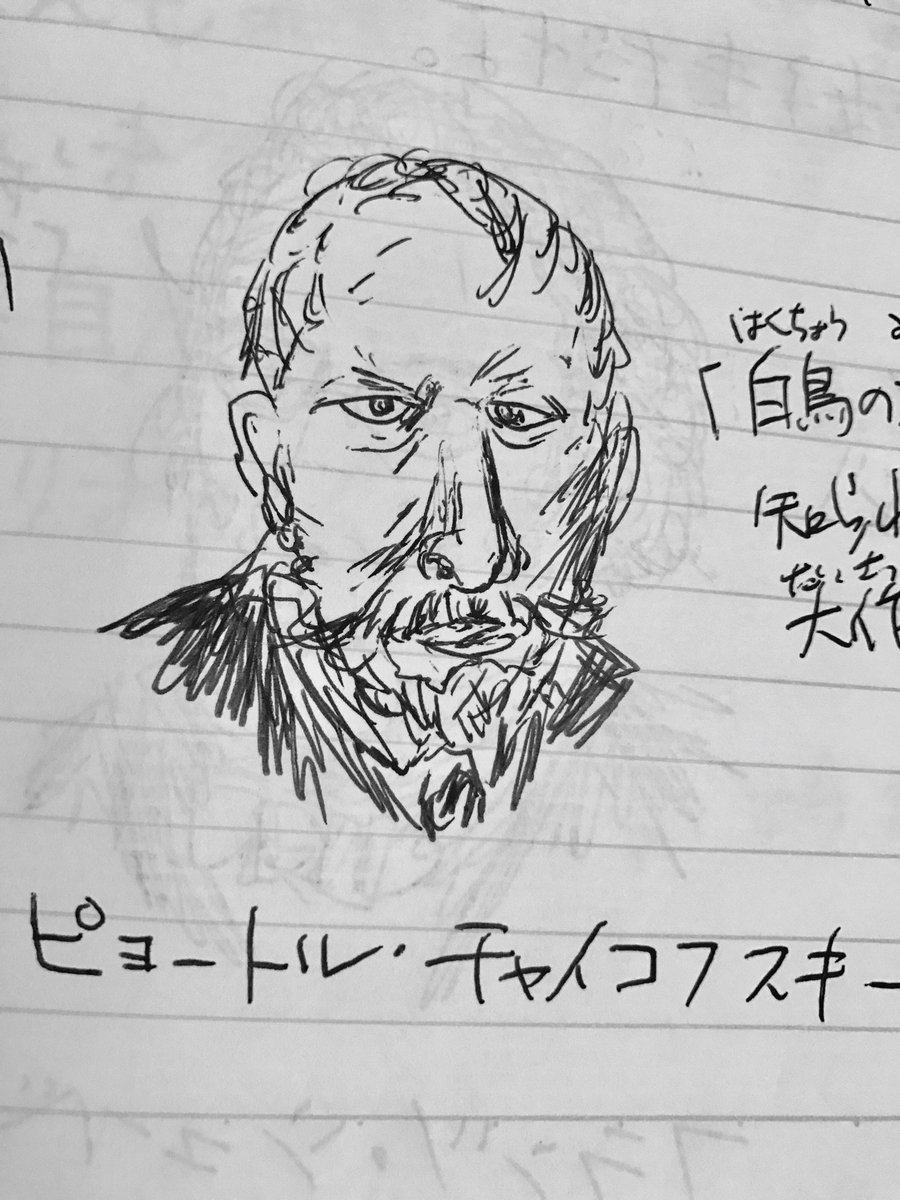 はくちょう
「白鳥の
知られ
だいさっ
大作
ピョートル・チャイコフスキー